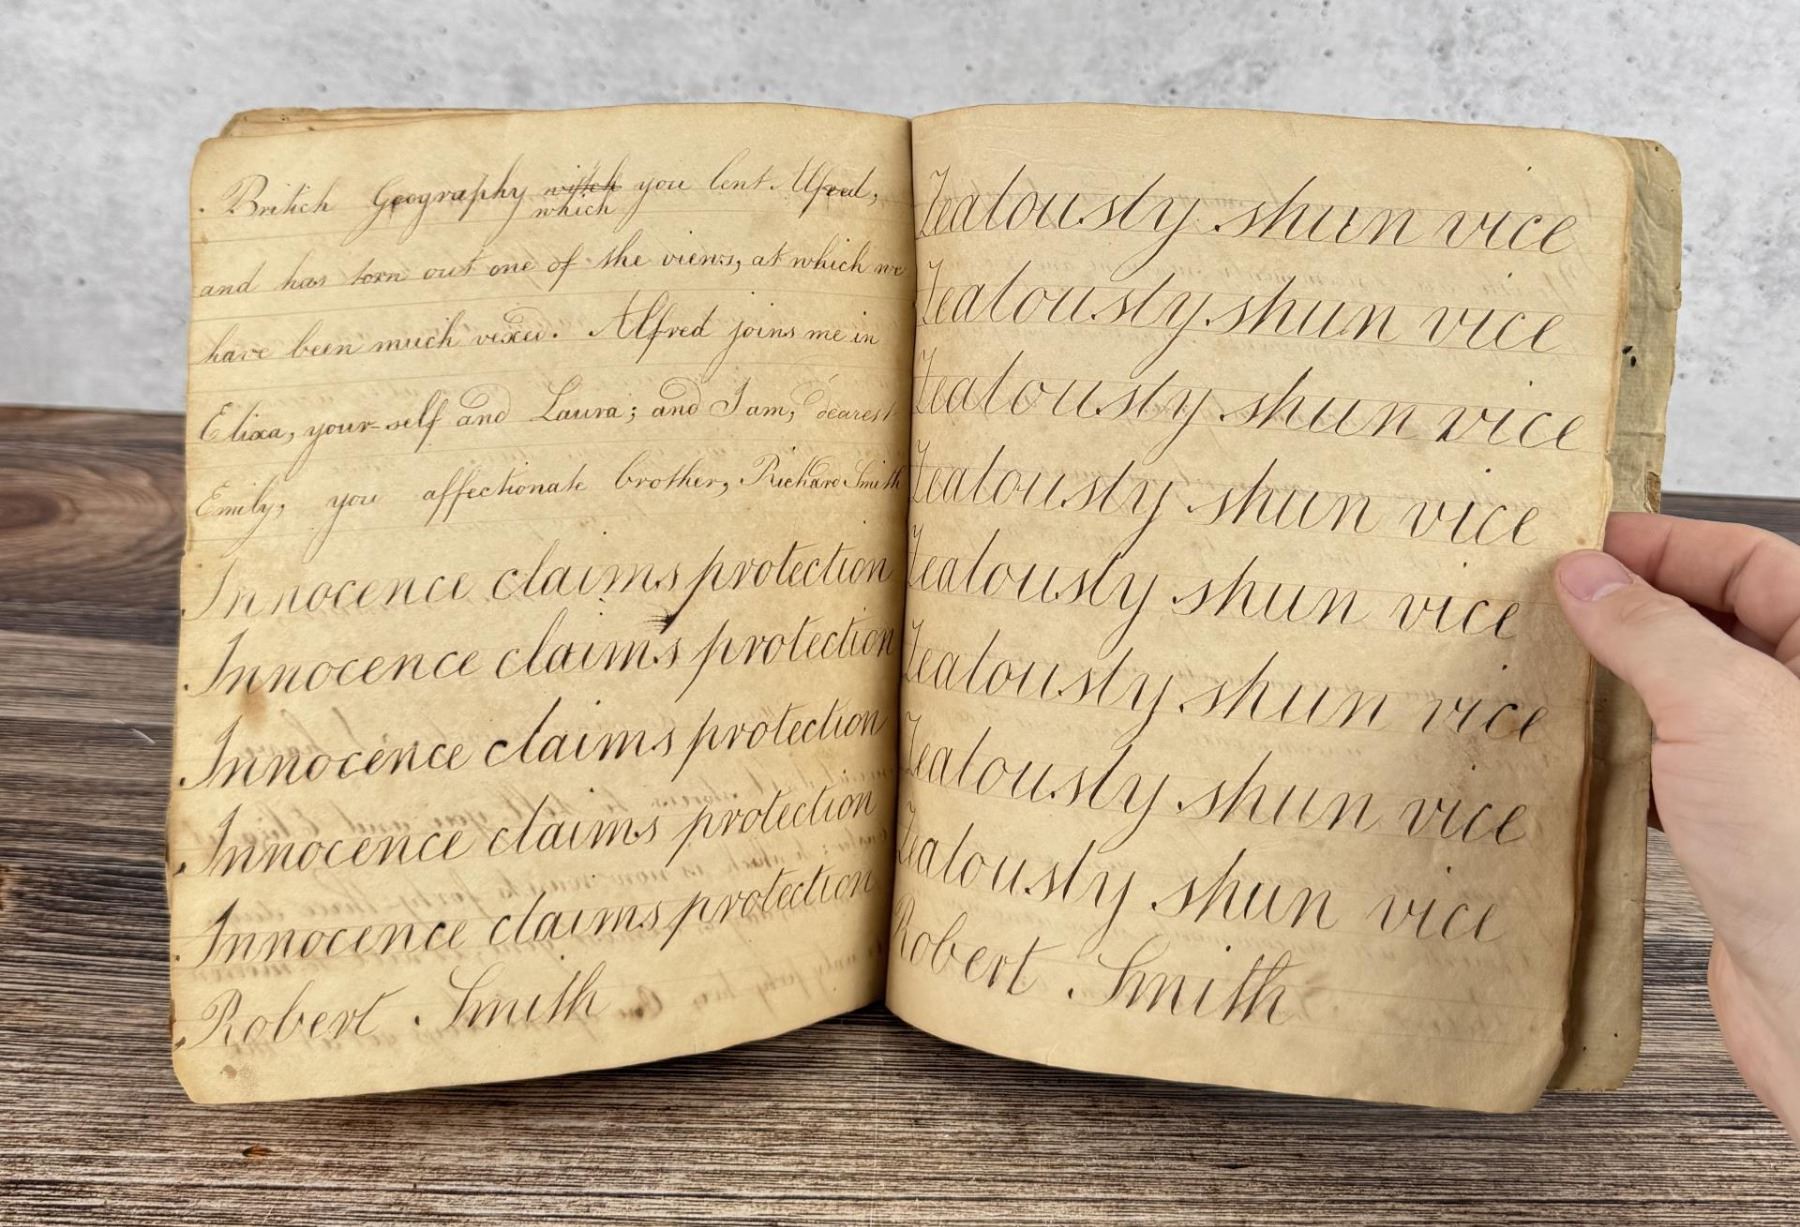 British Geography witch you lent Alfred,
which
and has torn out one of the views, at which we
have been much vexed. Alfred joins me in
Eliza, your-self and Laura; and I am, dearest
Emily, you affectionate brother, Richard Smith
Innocence claims protection
Innocence claims protection
Innocence claims protection
Innocence claims protection
Innocence claims protection
Robert Smith
Zealously shun vice
Zealously shun vice
Zealously shun vice
Zealously shun vice
Zealously shun vice
Zealously shun vice
Zealously shun vice
Zealously shun vice
Robert Smith